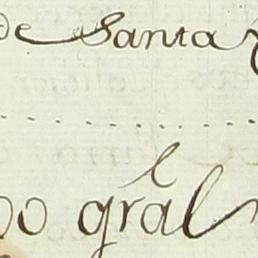 de Santa
do gral